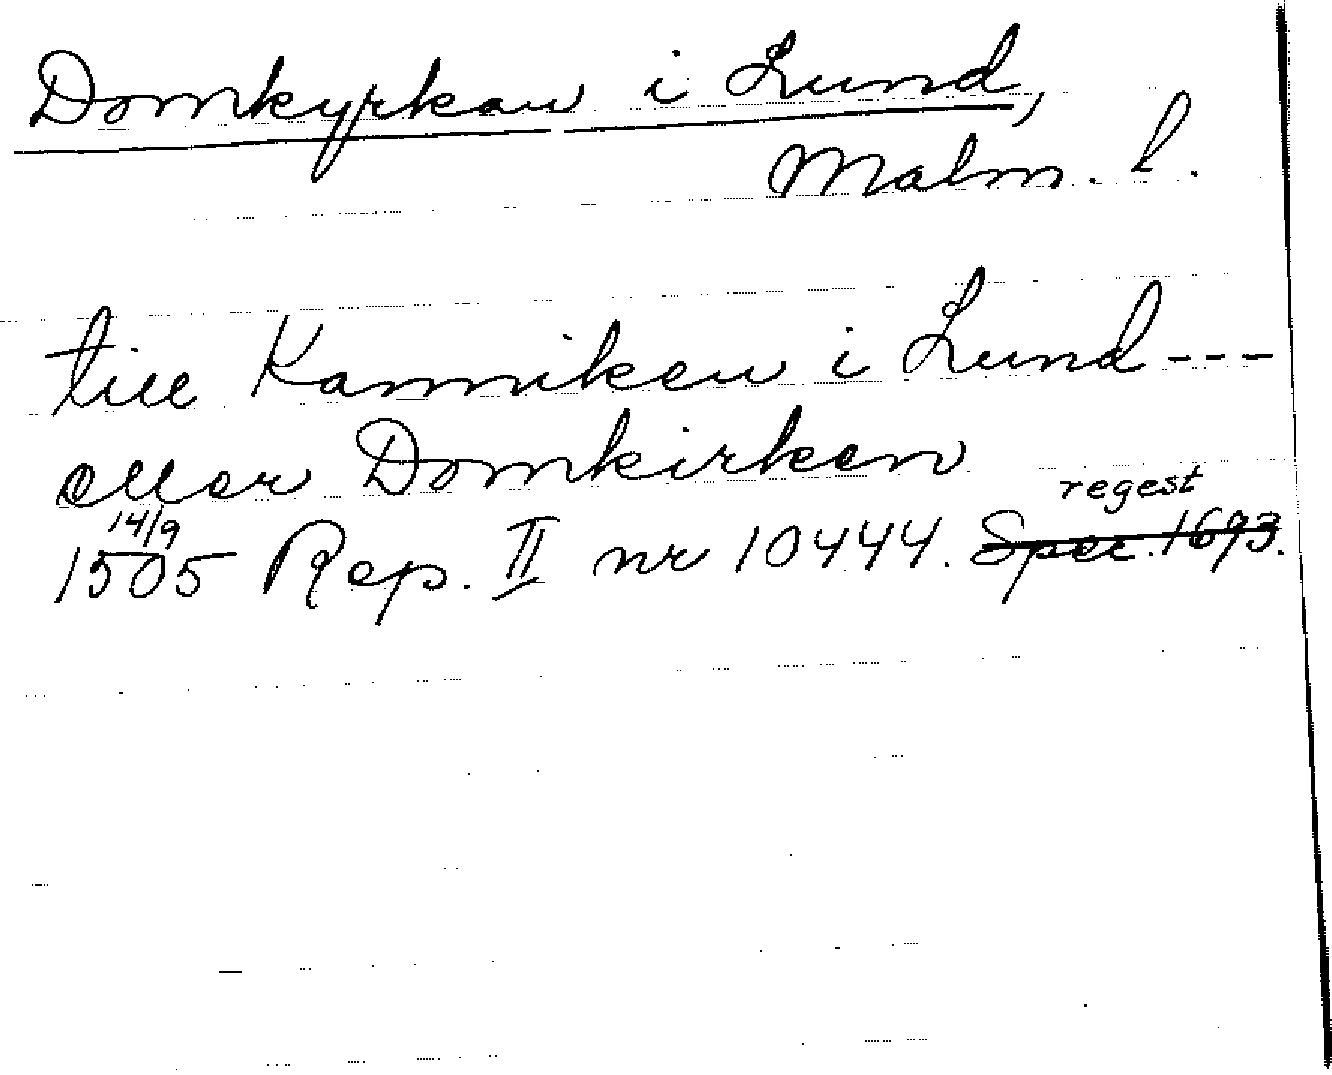 Domkyrkan i Lund,
Malm. l.
till Kanniken i Lund ---
eller Domkirken
regest
14/9
1505 Rep. II nr 10444. Spec. 1693.